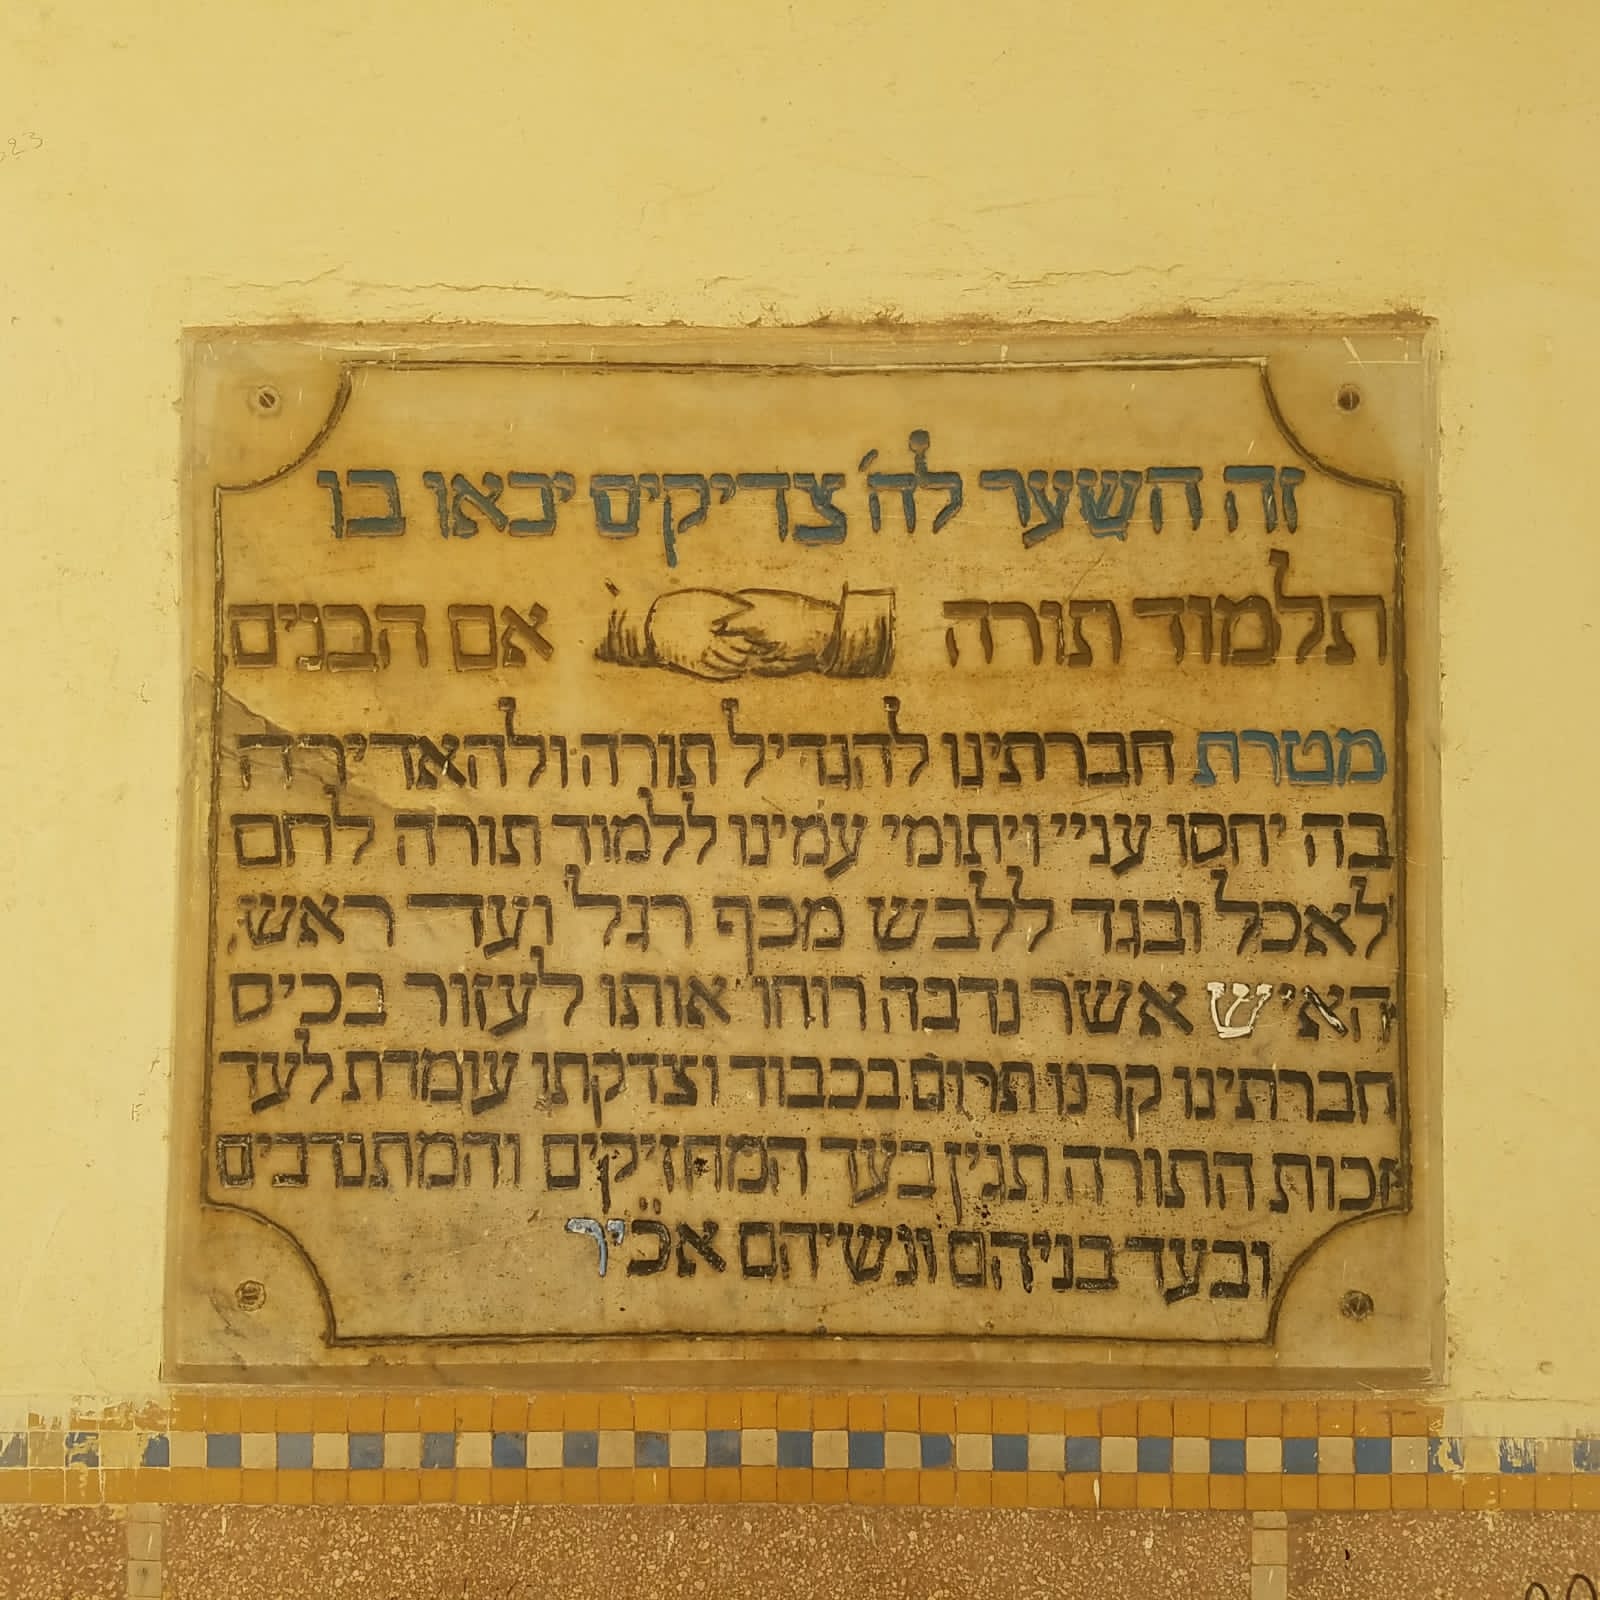 זה השער לה׳ צדיקים יבאו בו
תלמוד תורה אם הבנים
מטרת חברתינו להגדיל תורה ולהאדירה
בה יחסו עניי ויתומי עמינו ללמוד תורה לחם
לאכל ובגד ללבש מכף רגל ועד ראש
האיש אשר נדבה רוחו אותו לעזור בכים
חברתינו קרנו תרום בכבוד וצדקתו עומדת לעד
זכות התורה תגין בעד המחזיקים והמתנדבים
ובעד בניהם ונשיהם אכ״יר